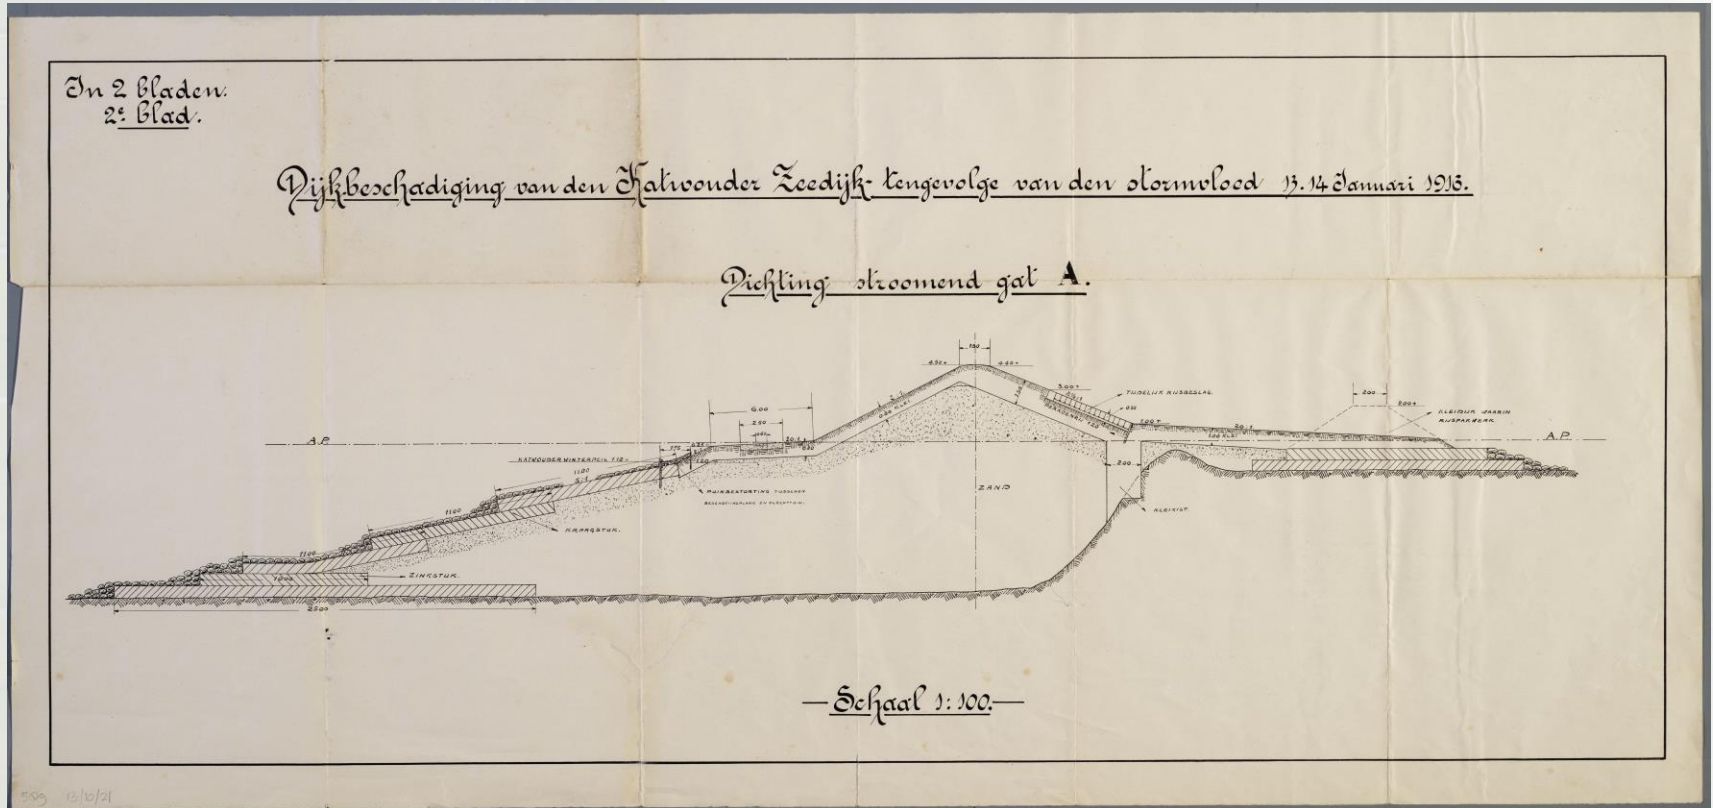 In 2 bladen.
2e blad.
Dijkbeschadiging van den Katwouder Zeedijk- tengevolge van den stormvloed 13.14 Januari 1916.
Dichting stroomend gat A.
150
4.50+
4.40+
3.00+
TIJDELIJK RIJSBESLAG.
200
2.00+
KLEIDIJK WAARIN
RIJSPAKWERK
6.00
2.50
0.80 KLEI
1.00 KLEI
A.P.
A.P.
KATWOUDER WINTERPEIL 1.12-
11.00
5:1
ZAND
2.00
PUIKBESTORTING TUSSCHEN
KLEIKIST.
11.00
KRAAGSTUK.
11.00
ZINKSTUK.
25.00
Schaal 1:100.
559 13/10/21